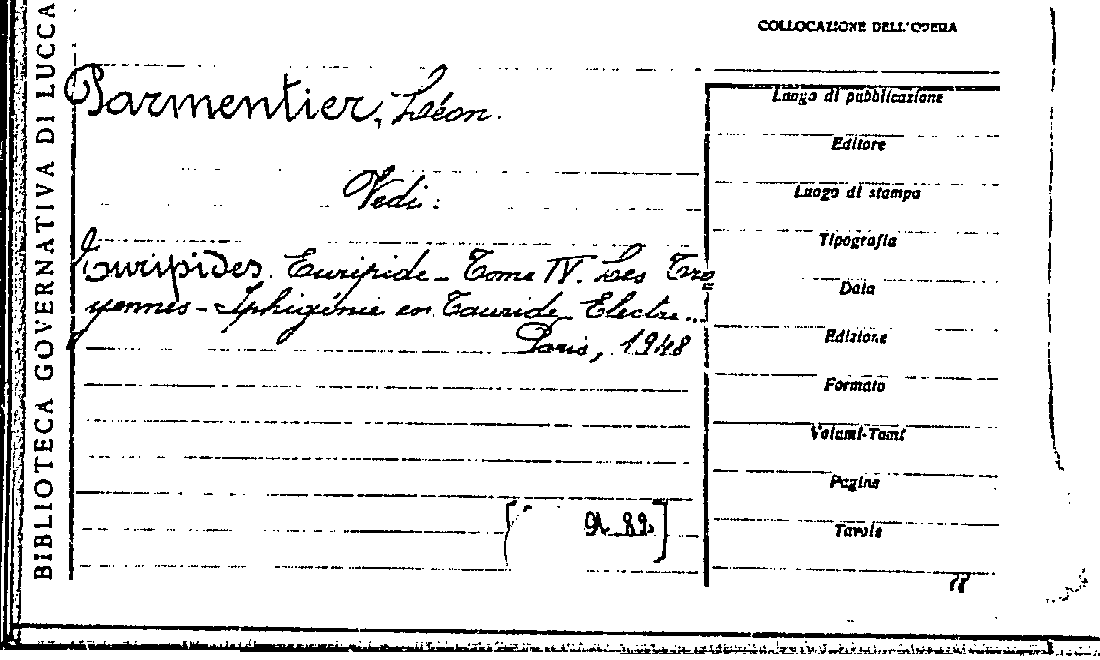 BIBLIOTECA GOVERNATIVA DI LUCCA
COLLOCAZIONE DELL'OPERA
Parmentier, Léon.
Vedi:
Euripides. Euripide - Tome IV. Les Tro
yennes - Iphigénie en Tauride Electre...
Paris, 1948
Luogo di pubblicazione
Editore
Luogo di stampa
Tipografia
Data
Edizione
Formato
Volumi-Tomi
Pagine
Tavole